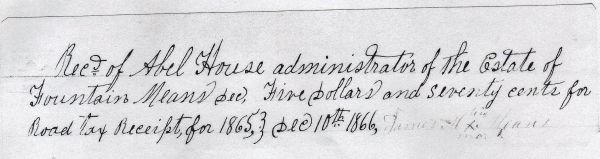 Recd. of Abel House administrator of the Estate of
Fountain Means Dec, Five Dollars and Seventy cents for
Road tax Receipt, for 1865,} Dec 10th 1866,
his
James x Means
mark